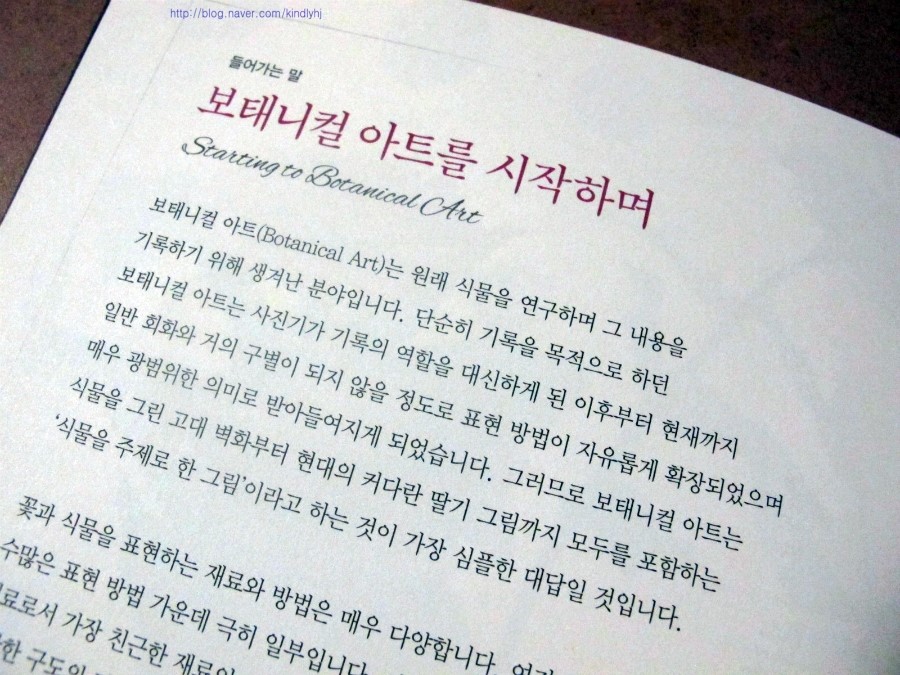 http://blog.naver.com/kindlyhj
들어가는 말
보태니컬 아트를 시작하며
Starting to Botanical Art
보태니컬 아트(Botanical Art)는 원래 식물을 연구하며 그 내용을
기록하기 위해 생겨난 분야입니다. 단순히 기록을 목적으로 하던
보태니컬 아트는 사진기가 기록의 역할을 대신하게 된 이후부터 현재까지
일반 회화와 거의 구별이 되지 않을 정도로 표현 방법이 자유롭게 확장되었으며
매우 광범위한 의미로 받아들여지게 되었습니다. 그러므로 보태니컬 아트는
식물을 그린 고대 벽화부터 현대의 커다란 딸기 그림까지 모두를 포함하는
‘식물을 주제로 한 그림’이라고 하는 것이 가장 심플한 대답일 것입니다.
꽃과 식물을 표현하는 재료와 방법은 매우 다양합니다.
수많은 표현 방법 가운데 극히 일부입니다
가장 친근한 재료
구도의